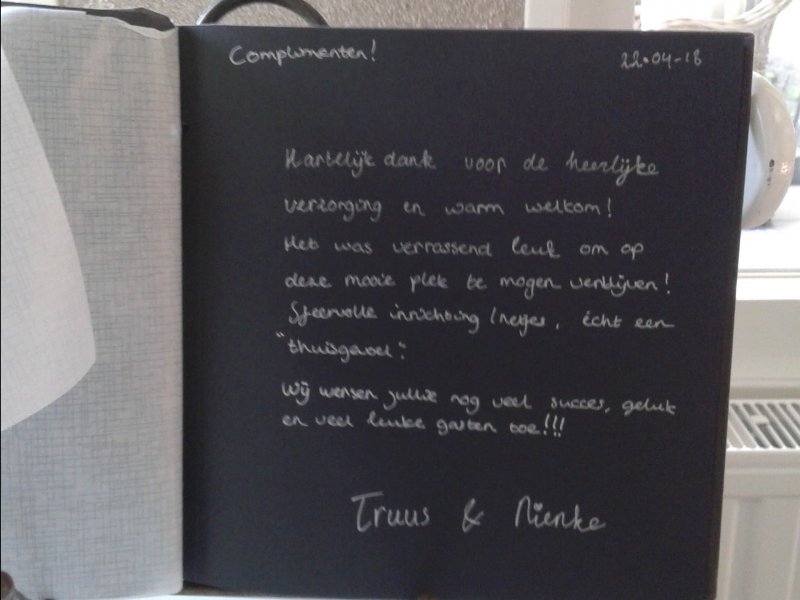 Complimenten! 22-04-18
Hartelijk dank voor de heerlijke
verzorging en warm welkom!
Het was verrassend leuk om op
deze mooie plek te mogen verblijven!
Sfeervolle inrichting / netjes, écht een
"thuisgevoel".
Wij wensen jullie nog veel succes, geluk
en veel leuke gasten toe!!!
Truus & Nienke